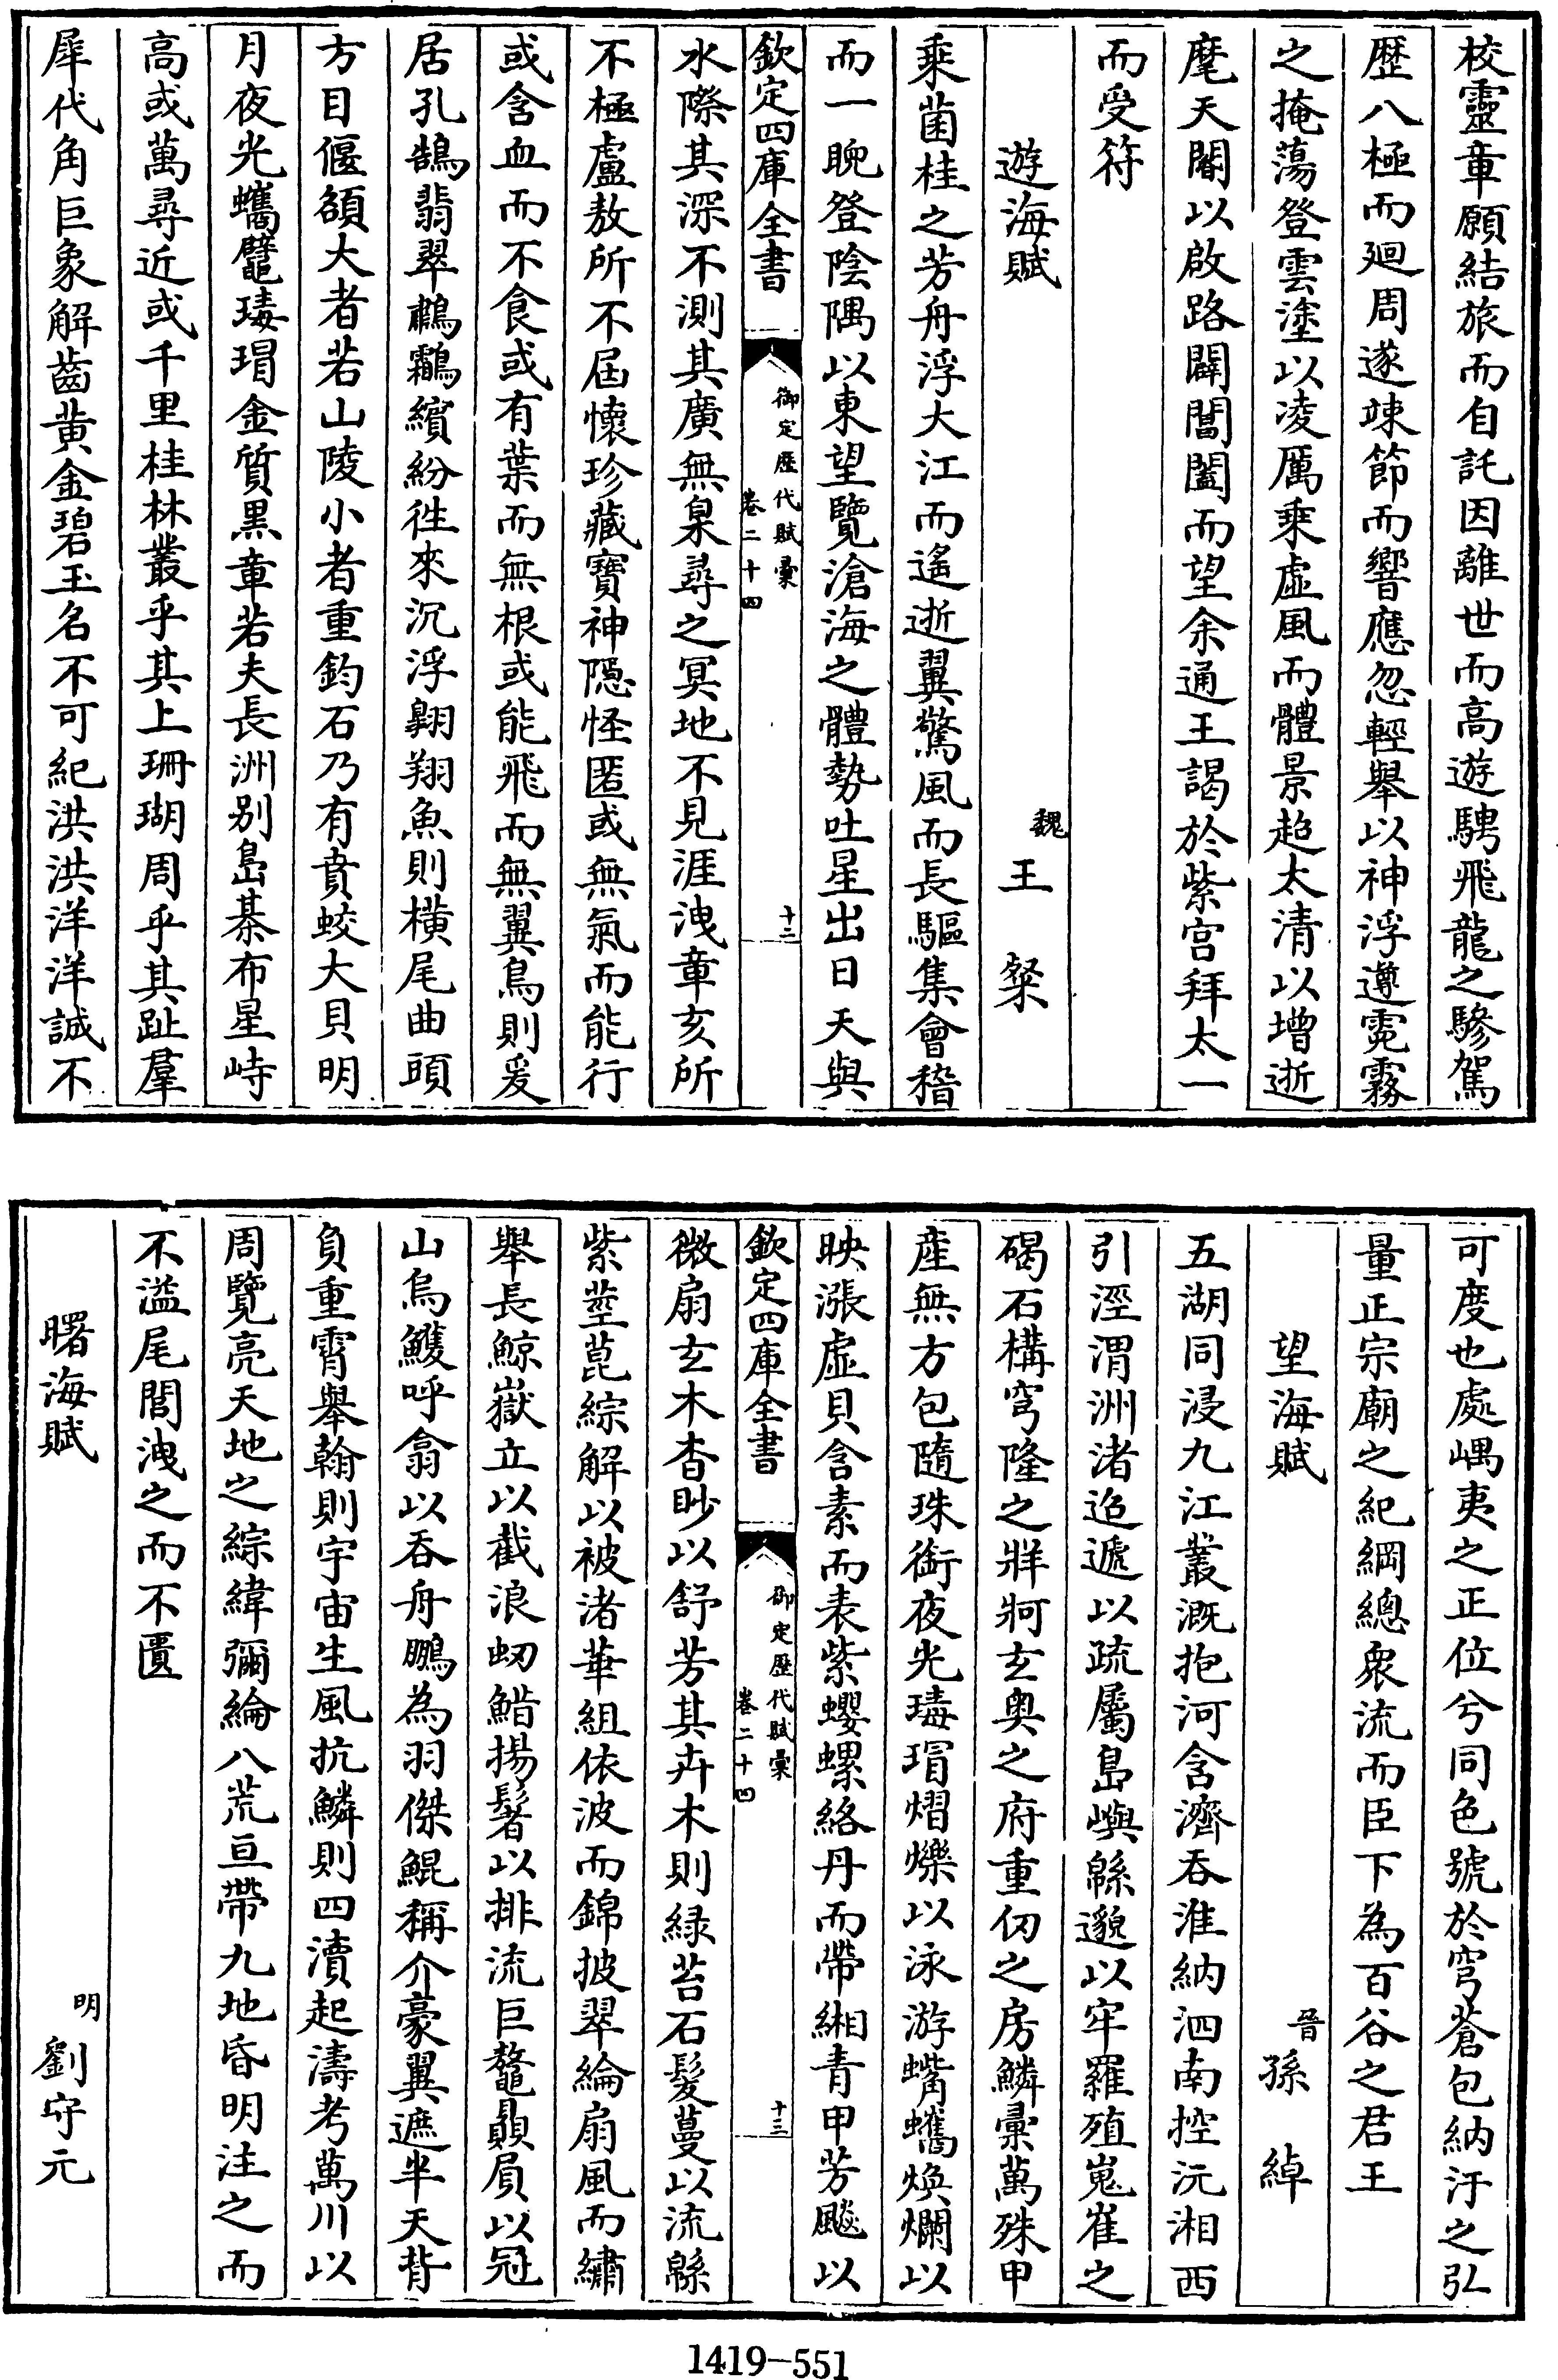 校靈章願結旅而自託因離世而高遊騁飛龍之驂駕
歷八極而廻周遂竦節而響應忽輕舉以神浮遵霓霧
之掩蕩登雲塗以凌厲乘虛風而體景超太清以增逝
麾天閽以啟路闢閶闔而望余通王謁於紫宫拜太一
而受符
遊海賦
魏王粲
乘菌桂之芳舟浮大江而遙逝翼驚風而長驅集會稽
而一睨登陰隅以東望覽滄海之體勢吐星出日天與
欽定四庫全書
御定歷代賦彙
卷二十四
十二
水際其深不測其廣無臬尋之冥地不見涯洩章亥所
不極盧敖所不屆懷珍藏寶神隱怪匿或無氣而能行
或含血而不食或有葉而無根或能飛而無翼鳥則爰
居孔鵠翡翠鷫鸘繽紛徃來沉浮翱翔魚則橫尾曲頭
方目偃頟大者若山陵小者重鈞石乃有賁蛟大貝明
月夜光蠵鼊瑇瑁金質黑章若夫長洲别島棊布星峙
高或萬尋近或千里桂林叢乎其上珊瑚周乎其趾羣
犀代角巨象解齒黄金碧玉名不可紀洪洪洋洋誠不
可度也處嵎夷之正位兮同色號於穹蒼包納汙之弘
量正宗廟之紀綱總衆流而臣下為百谷之君王
望海賦
晉孫綽
五湖同浸九江叢溉抱河含濟吞淮納泗南控沅湘西
引涇渭洲渚迢遞以疏屬島嶼緜邈以牢羅殖嵬崔之
碣石構穹隆之牂牁玄奥之府重仞之房鱗彙萬殊甲
産無方包隨珠銜夜光瑇瑁熠爍以泳游蟕蠵煥爛以
映漲虛貝含素而表紫螺絡丹而帶緗青甲芳飈以
欽定四庫全書
御定歷代賦彙
卷二十四
十三
微扇玄木杳眇以舒芳其卉木則緑苔石髮蔓以流緜
紫莖菎綜解以被渚華組依波而錦披翠綸扇風而繡
舉長鯨嶽立以截浪䱜揚鬐以排流巨鼇贔屓以冠
山烏鱯呼翕以吞舟鵬為羽傑鯤稱介豪翼遮半天背
負重霄舉翰則宇宙生風抗鱗則四瀆起濤考萬川以
周覽亮天地之綜緯彌綸八荒亘帶九地昏明注之而
不溢尾閭洩之而不匱
曙海賦
明劉守元
1419-551